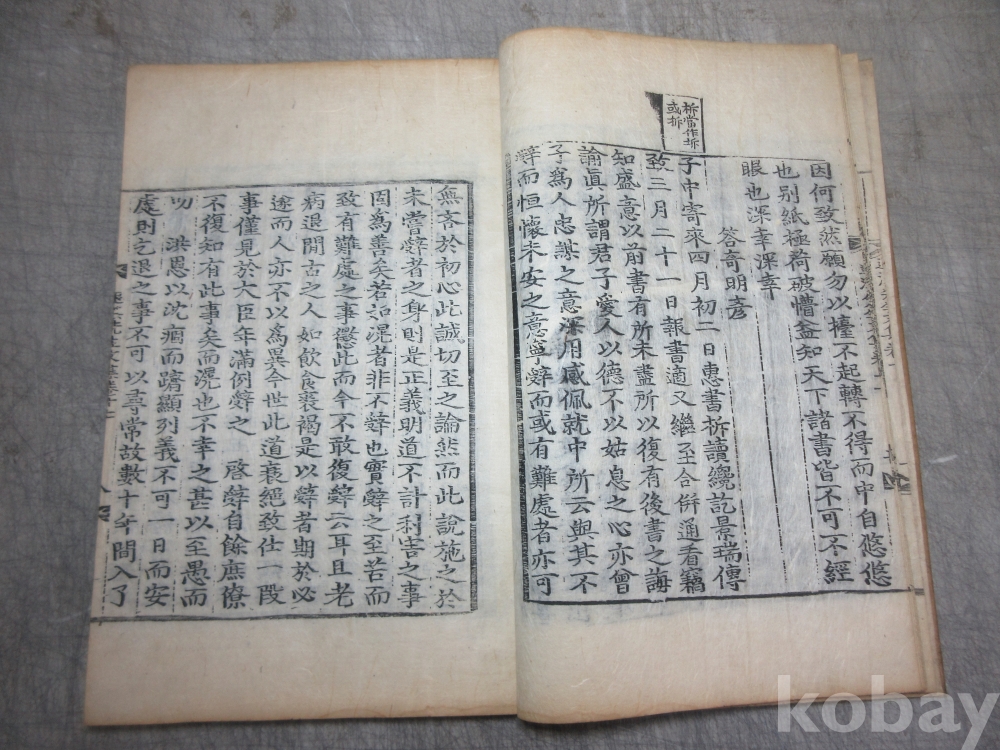 因何致然願勿以擡不起轉不得而中自悠悠
也別紙極荷破懵益知天下諸書皆不可不經
眼也深幸深幸
答奇明彦
子中寄來四月初二日惠書拆讀纔訖景瑞傳
致三月二十一日報書適又繼至合併通看竊
知盛意以前書有所未盡所以復有後書之誨
諭眞所謂君子愛人以德不以姑息之心亦曾
子爲人忠謀之意深用感佩就中所云與其不
辭而恒懷未安之意寧辭而或有難處者亦可
拆當作坼
或拆
無吝於初心此誠切至之論然而此說施之於
未嘗辭者之身則是正義明道不計利害之事
固爲善矣若如滉者非不辭也實辭之至苦而
致有難處之事懲此而今不敢復辭云耳且老
病退閒古之人如飮食裘褐是以辭者期於必
遂而人亦不以爲異今世此道衰絶致仕一段
事僅見於大臣年滿例辭之 啓辭自餘庶僚
不復知有此事矣而滉也不幸之甚以至愚而
叨 洪恩以沈痼而躋顯列義不可一日而安
處則乞退之事不可以尋常故數十年間入了
kobay